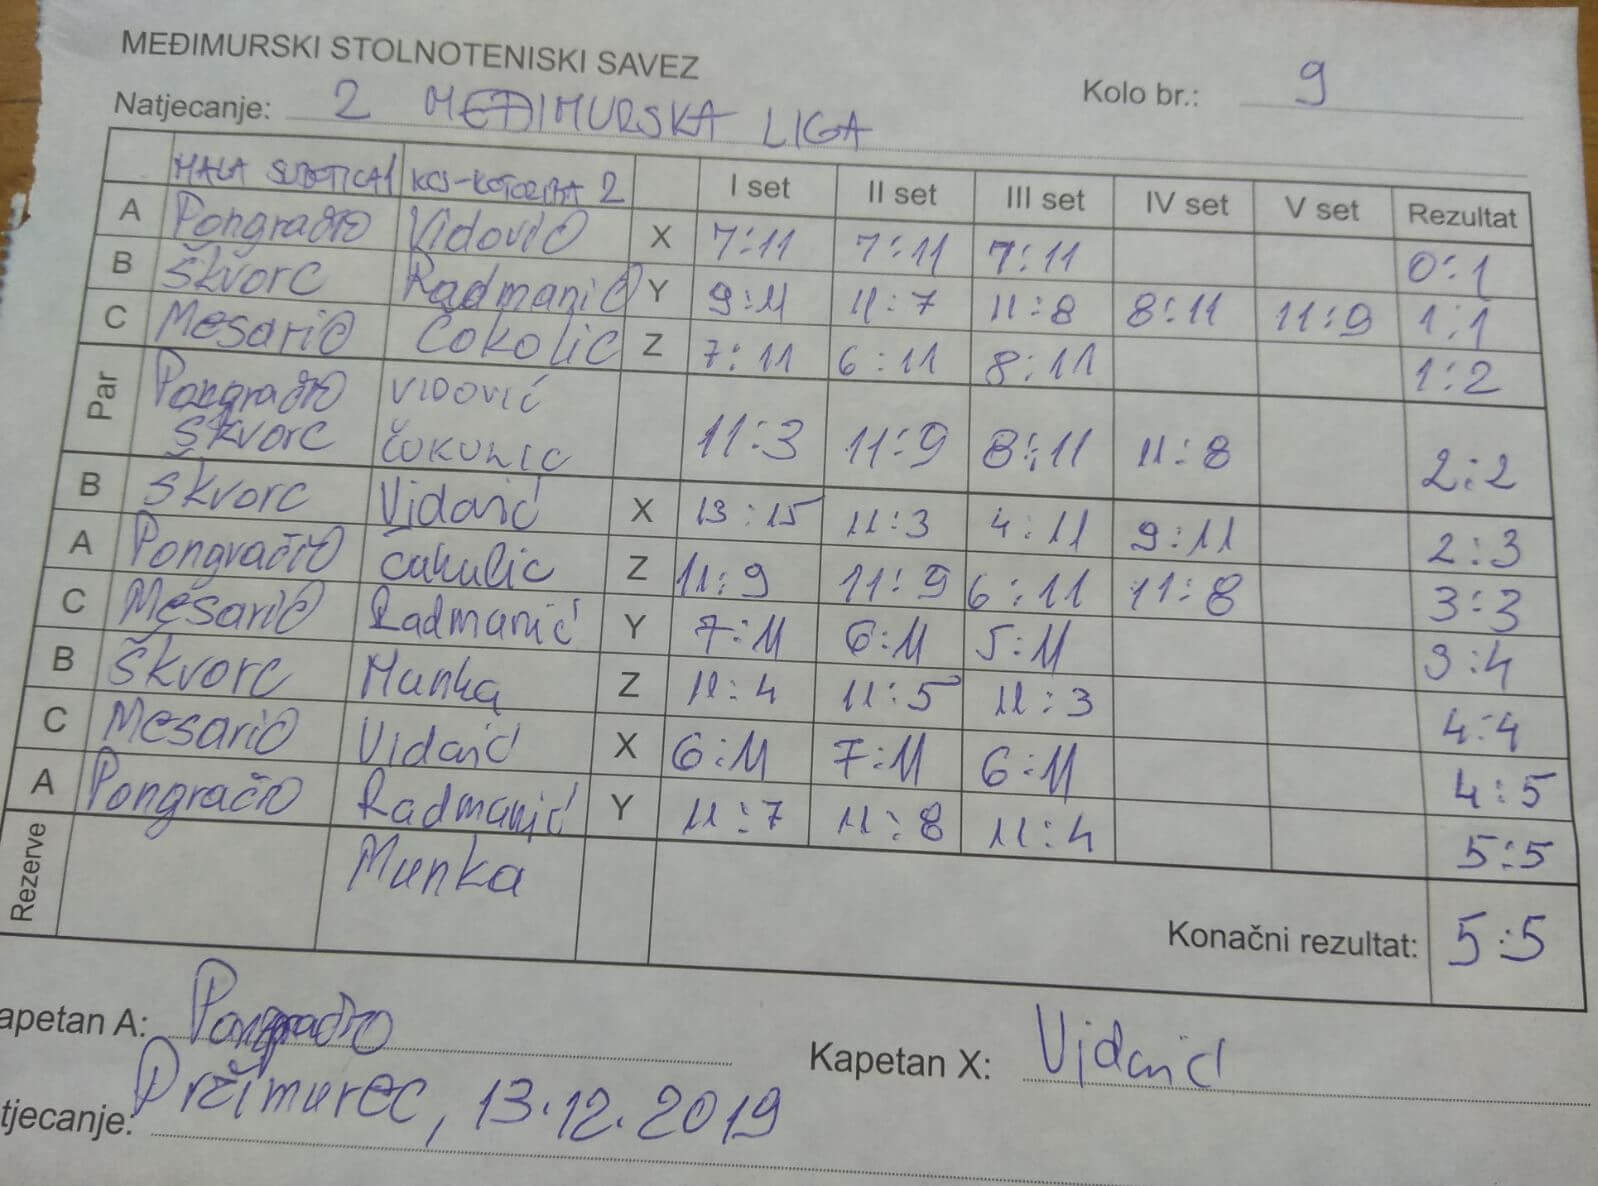 MEĐIMURSKI STOLNOTENISKI SAVEZ
Natjecanje: 2 MEĐIMURSKA LIGA Kolo br.: 9
MALA SUBOTICA 1 KCS-KOTORIBA 2 I set II set III set IV set V set Rezultat
A Pongračić Vidović X 7:11 7:11 7:11 0:1
B Škvorc Radmanić Y 9:11 11:7 11:8 8:11 11:9 1:1
C Mesarić Čokolić Z 7:11 6:11 8:11 1:2
Par Pongračić Vidović
Škvorc 11:3 11:9 8:11 11:8 2:2
B Škvorc Vidović X 13:15 11:3 4:11 9:11 2:3
A Pongračić Z 11:9 11:9 6:11 11:8 3:3
C Mesarić Radmanić Y 7:11 6:11 5:11 3:4
B Škvorc Munka Z 11:4 11:5 11:3 4:4
C Mesarić Vidović X 6:11 7:11 6:11 4:5
A Pongračić Radmanić Y 11:7 11:8 11:4 5:5
Rezerve Munka Konačni rezultat: 5:5
apetan A: Pongračić Kapetan X: Vidović
tjecanje: Držimurec, 13.12.2019